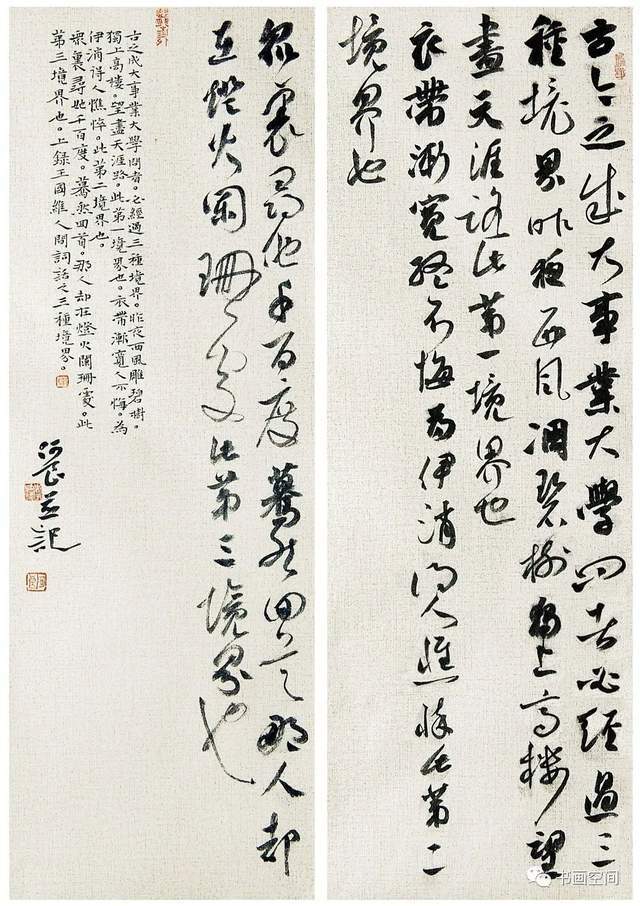 古今之成大事業大學問者必經過三
種境界昨夜西風凋碧樹獨上高樓望
盡天涯路此第一境界也
衣帶漸寬終不悔為伊消得人憔悴此第二
境界也
眾裏尋他千百度驀然回首那人却
在燈火闌珊處此第三境界也
古之成大事業大學問者。必經過三種境界。昨夜西風雕碧樹。
獨上高樓。望盡天涯路。此第一境界也。衣帶漸寬人不悔。為
伊消得人憔悴。此第二境界也。
眾裏尋她千百度。驀然回首。那人却在燈火闌珊處。此
第三境界也。上錄王國維人間詞話之三種境界。
并記
书画空间